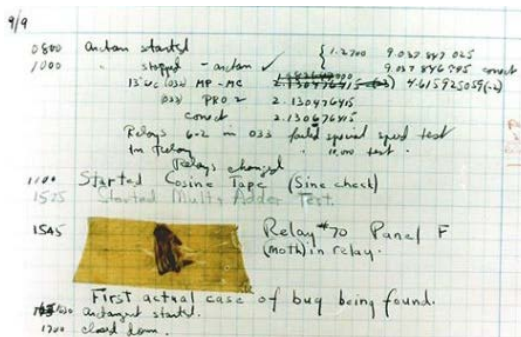 9/9
0800 antan started { 1.2700 9.037 847 025
1000 " stopped - antan ✓ 9.037 846 995 correct
13"uc (032) MP-MC 2.130476415 4.615925059(-2)
(033) PRO 2 2.130476415
correct 2.130676415
Relays 6-2 in 033 failed special speed test
in relay " 10.000 test.
Relays changed
1100 Started Cosine Tape (Sine check)
1525 Started Mult+Adder Test.
1545 Relay #70 Panel F
(moth) in relay.
First actual case of bug being found.
1630 antangent started.
1700 closed down.